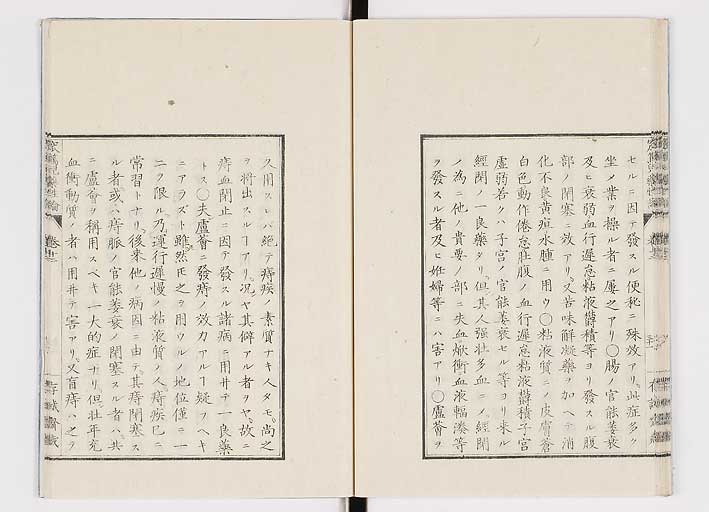 セルニ因テ發スル便秘ニ殊效アリ。此症多ク
坐ノ業ヲ操ル者ニ屢之アリ○腸ノ官能萎衰
及ヒ衰弱血行遲怠粘液欝積等ヨリ發スル腹
部ノ閉塞ニ效アリ。又苦味解凝藥ヲ加ヘテ消
化不良黄疸水腫ニ用ウ○粘液質ニメ皮膚蒼
白色動作倦怠壯腹ノ血行遲怠粘液欝積子宮
虚弱若クハ子宮ノ官能萎衰セル等ヨリ來ル
經閉ノ一良藥タリ。但其人强壮多血ニメ。經閉
ノ為ニ他ノ貴要ノ部ニ失血焮衝血液輻湊等
ヲ發スル者及ヒ妊婦等ニハ害アリ○盧薈ヲ
久用スレハ絶テ痔疾ノ素質ナキ人タモ。尚之
ヲ將出スルヿアリ。况ヤ其僻アル者ヲヤ。故ニ
痔血閉止ニ因テ發スル諸病ニ用井テ一良藥
トス○夫盧薈ニ發痔ノ效力アルヿ疑フヘキ
ニアラズト雖𪜈之ヲ用ウルノ地位僅ニ一
二ヲ限ル乃運行遲慢ノ粘液質ノ人痔疾已ニ
常習トナリ。後來他ノ病因ニ由テ其痔閉塞ス
ル者或ハ痔脈ノ官能萎衰ノ閉塞スル者ハ共
ニ盧薈ヲ稱用スヘキ一大的症ナリ。但壮年充
血衝動質ノ者ハ用井テ害アリ。又盲痔ハ之ヲ